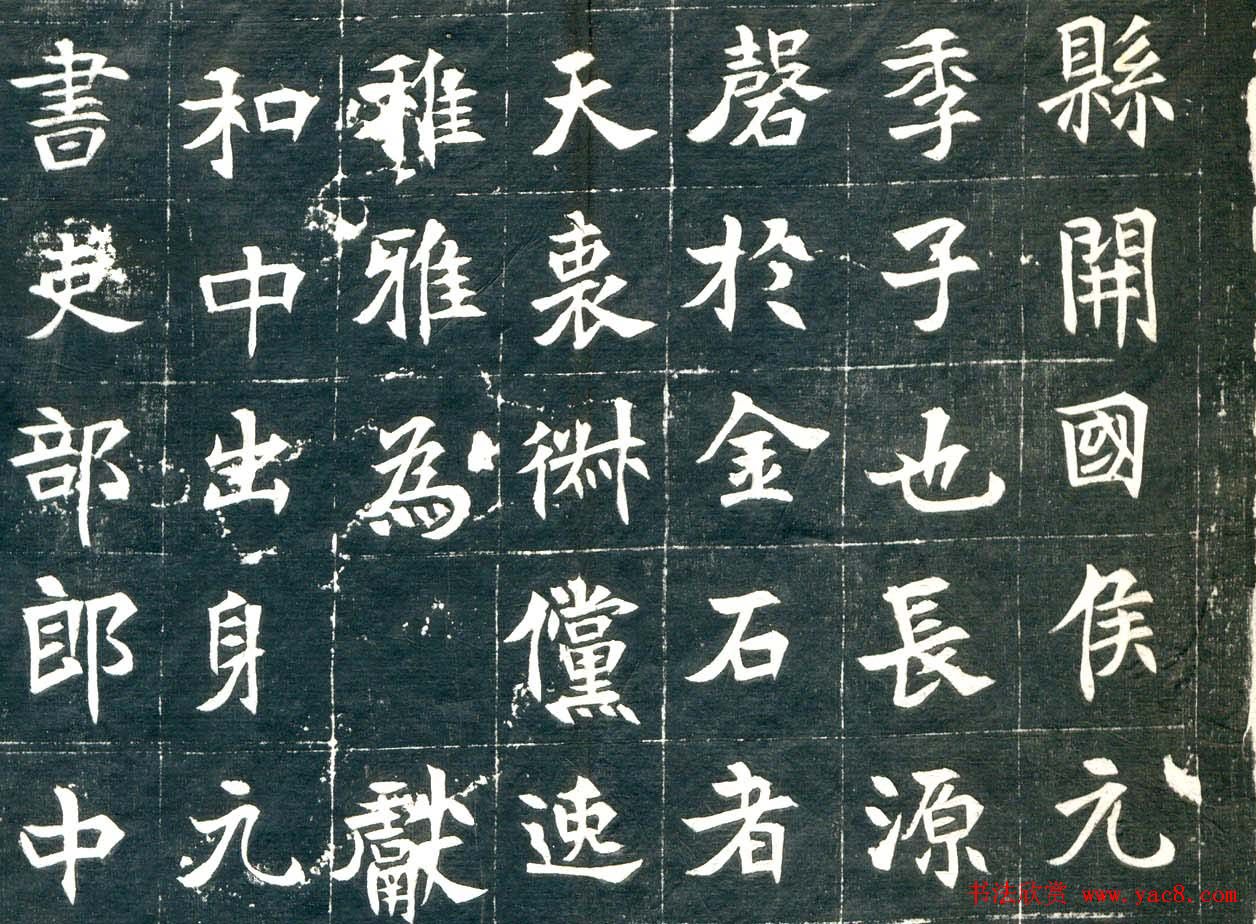 縣開國侯元
季子也長源
磬於金石者
天衷俶儻速
稚雅為獻
和中出身元
書吏部郎中
书法欣赏 www.yac8.com